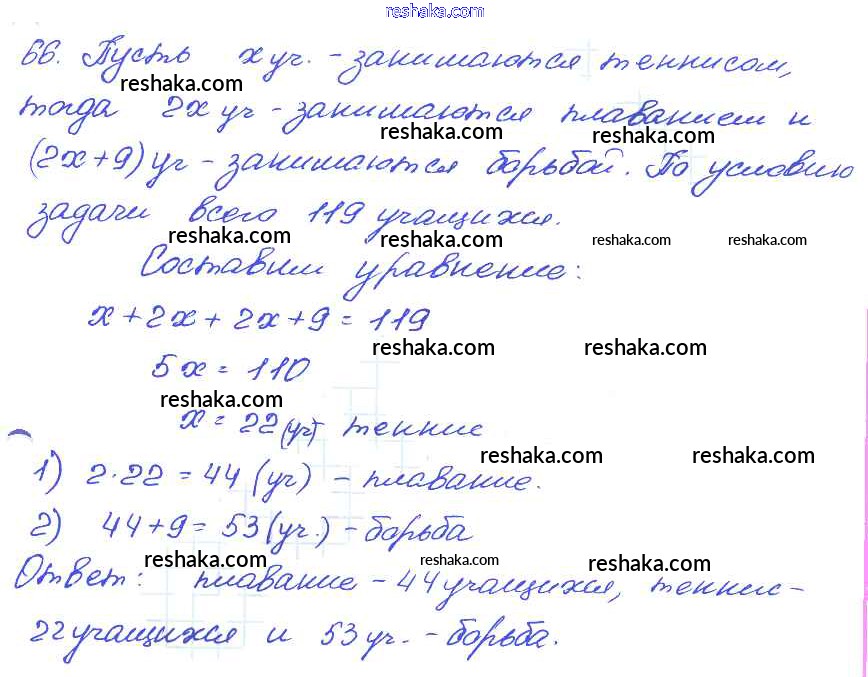 reshaka.com
66. Пусть x уч. - занимаются теннисом,
reshaka.com
тогда 2x уч - занимаются плаванием и
reshaka.com reshaka.com
(2x+9) уч - занимаются борьбой. По условию
задачи всего 119 учащихся.
reshaka.com reshaka.com reshaka.com reshaka.com
Составим уравнение:
x + 2x + 2x + 9 = 119
reshaka.com reshaka.com
5x = 110
reshaka.com
x = 22 (уч) теннис
reshaka.com reshaka.com
1) 2·22 = 44 (уч) - плавание.
2) 44 + 9 = 53 (уч.) - борьба
reshaka.com reshaka.com reshaka.com
Ответ: плавание - 44 учащихся, теннис -
22 учащихся и 53 уч. - борьба.